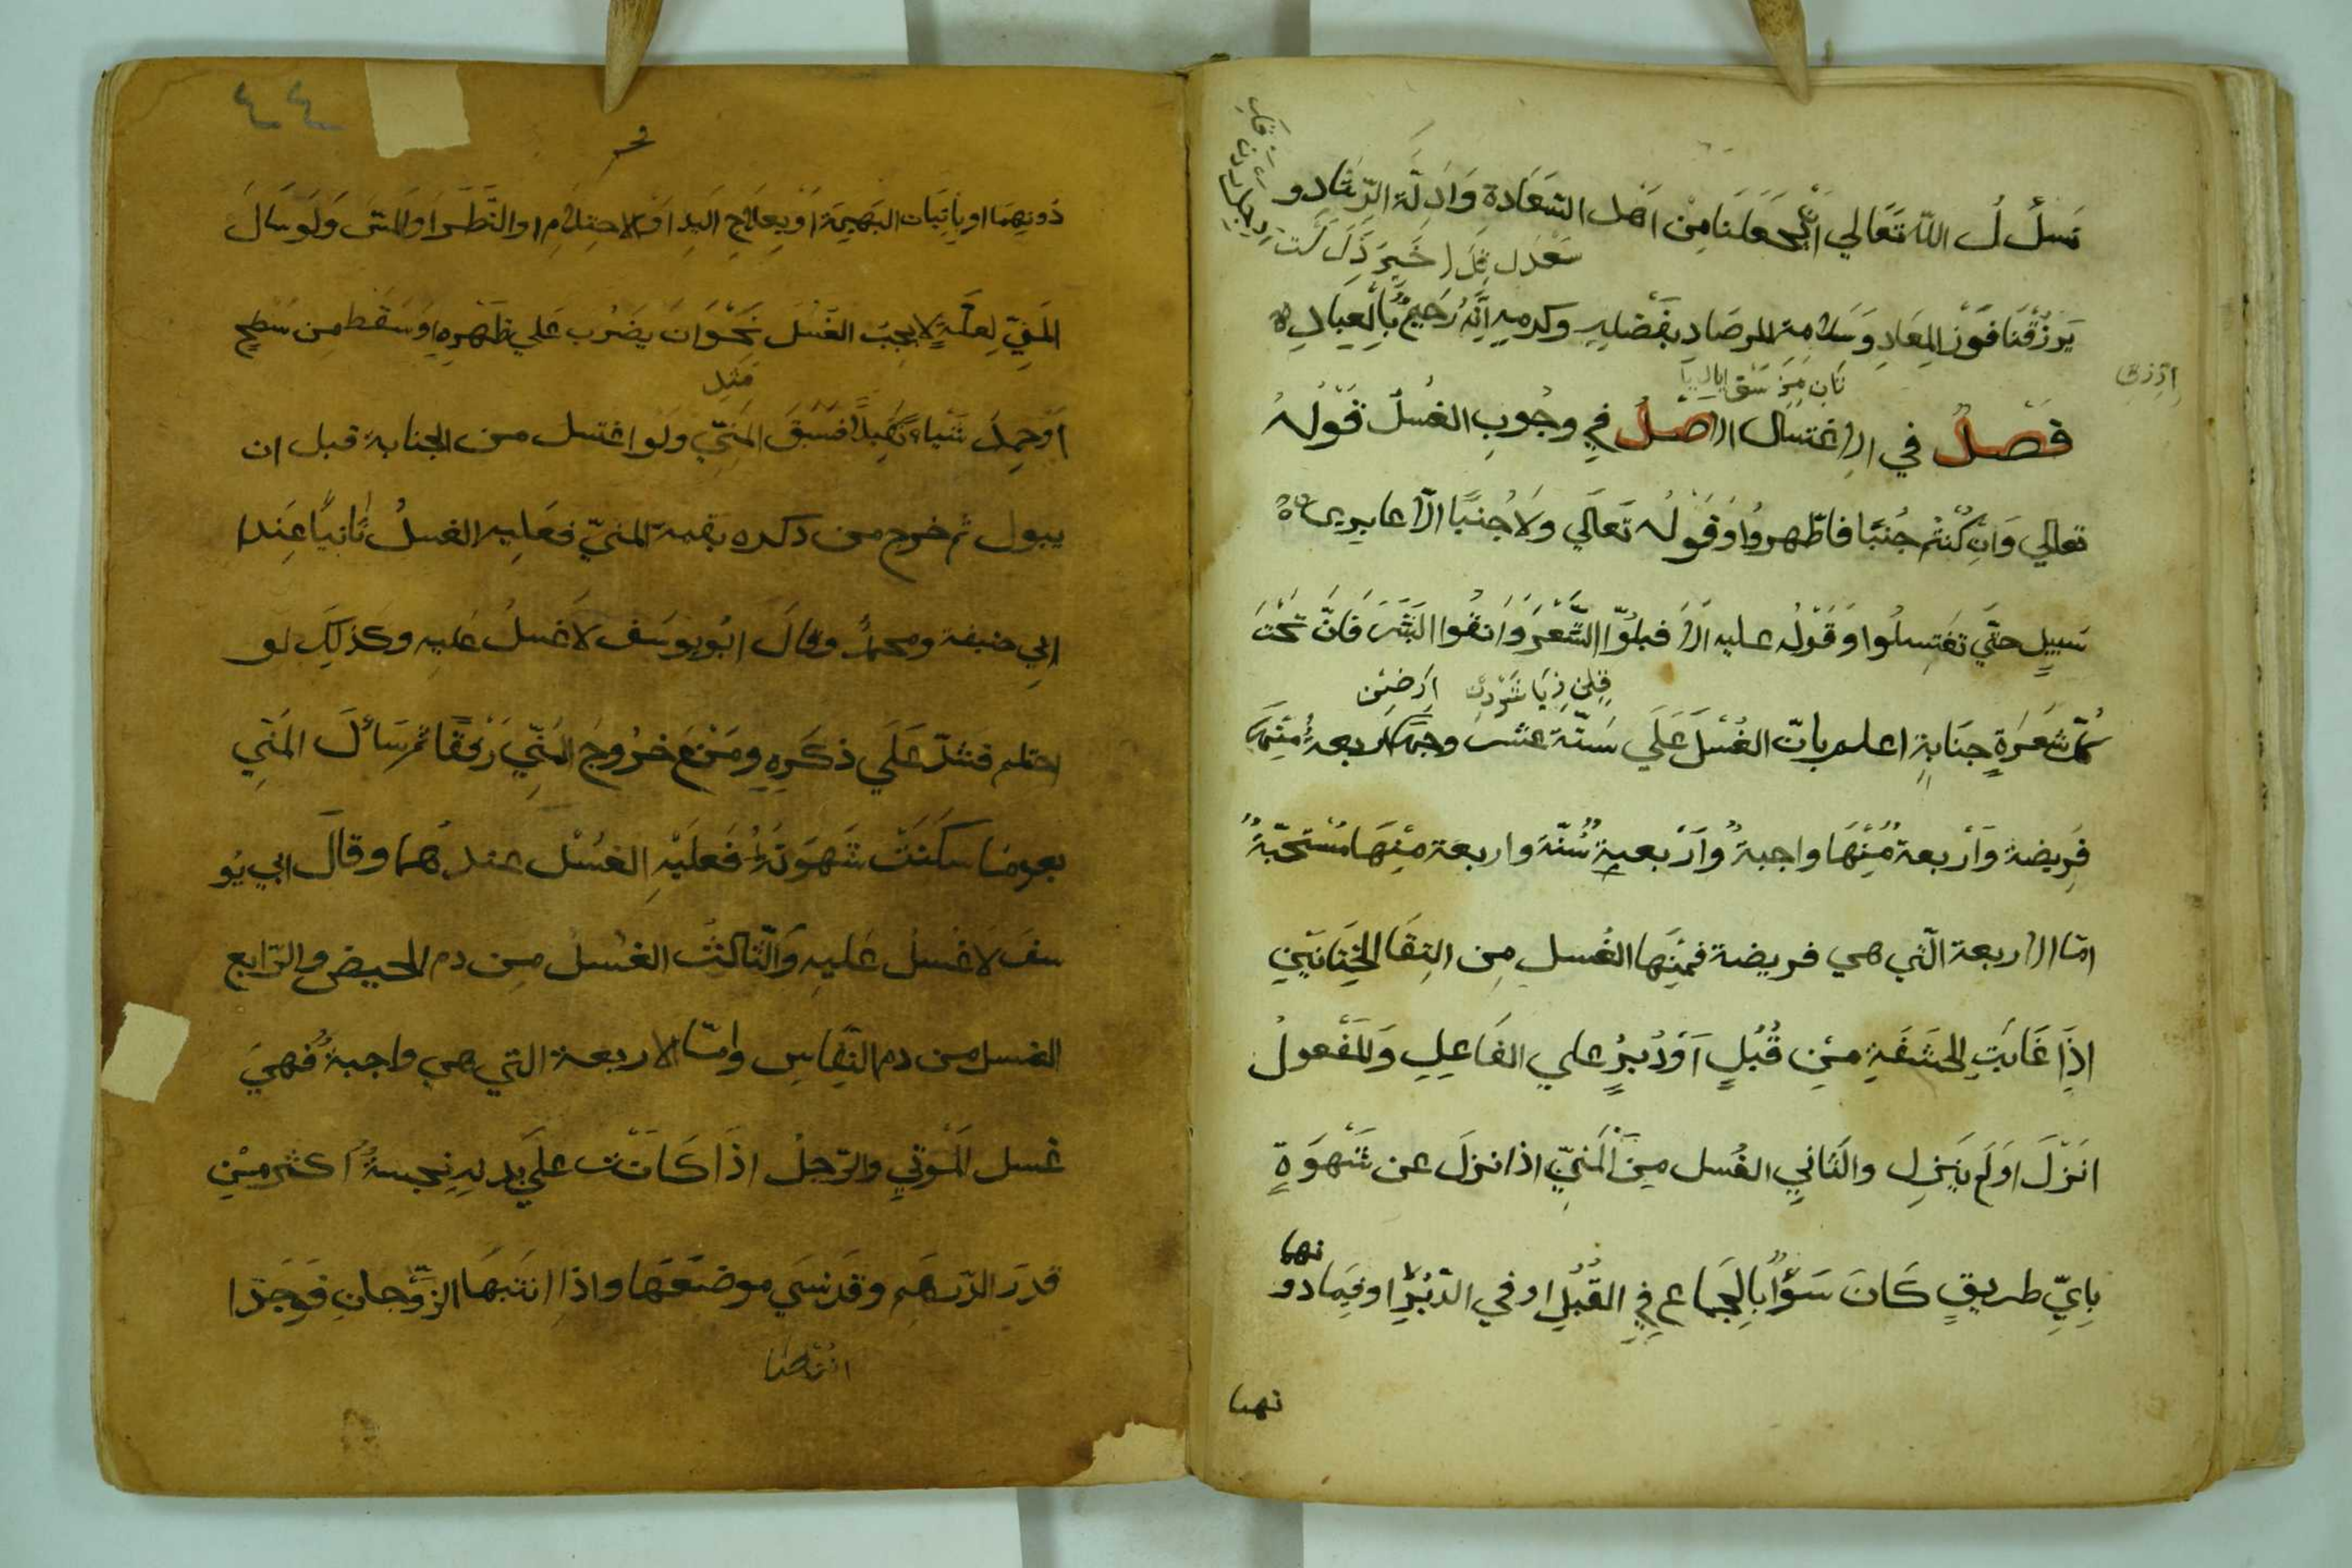 نسأل الله تعالي ان يجعلنا من اهل السعادة وادلة الرشاد و
يرزقنا فوز المعاد وسلامة المرصاد بفضله وكرمه انه رحيم بالعباد
فصل في الاغتسال الاصل في وجوب الغسل قوله
تعالي وان كنتم جنبا فاطهروا وقوله تعالي ولا جنبا الا عابري
سبيل حتي تغتسلوا وقوله عليه الا فبلوا الشعر وانقوا البشر فان تحت
كل شعرة جنابة اعلم بان الغسل علي ستة عشر وجها اربعة منها
فريضة واربعة منها واجبة واربعة سنة واربعة منها مستحبة
اما الاربعة التي هي فريضة فمنها الغسل من التقا الختانين
اذا غابت الحشفة من قبل او دبر علي الفاعل والمفعول
انزل او لم ينزل والثاني الغسل من المني اذا نزل عن شهوة
باي طريق كان سوا بالجماع في القبل او في الدبر او فيما دو
نهما
نهما
٤٤
دونهما او باتيان البهيمة او بعلاج اليد او الاحتلام او النظر او المس ولو سال
المني لعلة لا يجب الغسل نحو ان يضرب علي ظهره او سقط من سطح
او حمل شياء ثقيلا فسبق المني ولو اغتسل من الجنابة قبل ان
يبول ثم خرج من ذكره بقية المني فعليه الغسل ثانيا عند
ابي حنيفة ومحمد وقال ابو يوسف لا غسل عليه وكذلك لو
احتلم فشد علي ذكره ومنع خروج المني رفقا ثم سأل المني
بعدما سكنت شهوته فعليه الغسل عندهما وقال ابي يو
سف لا غسل عليه والثالث الغسل من دم الحيض والرابع
الغسل من دم النفاس واما الاربعة التي هي واجبة فهي
غسل الموتي والرجل اذا كانت علي بدنه نجسة اكثر من
قدر الدرهم وقد نسي موضعها واذا انتبها الزوجان فوجدا